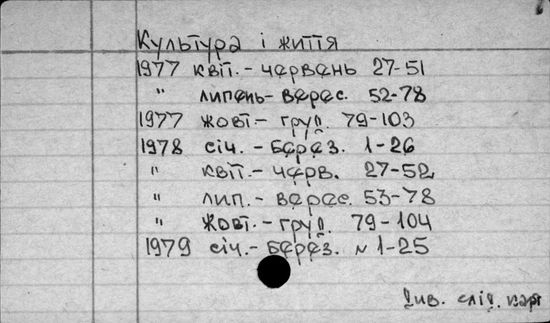 Культура і життя
1977 квіт. - червень 27-51
" липень - верес. 52-78
1977 жовт. - груд. 79-103
1978 січ. - берез. 1-26
" квіт. - черв. 27-52
" лип. - верес. 53-78
" жовт. - груд. 79-104
1979 січ. - берез. № 1-25
Див. слід. карт